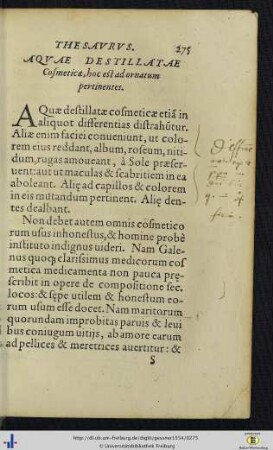 THESAVRVS. 275
AQVAE DESTILLATAE
Cosmeticæ, hoc est ad ornatum
pertinentes.
AQuæ destillatæ cosmeticæ etiã in
aliquot differentias distrahũtur.
Aliæ enim faciei conueniunt, ut colo-
rem eius reddant, album, roseum, niti-
dum, rugas amoueant, à Sole præser-
uent: aut ut maculas & scabritiem in ea
aboleant. Alię ad capillos & colorem
in eis mutandum pertinent. Alię den-
tes dealbant.
Non debet autem omnis cosmetico
rum usus inhonestus, & homine probè
instituto indignus uideri. Nam Gale-
nus quoq; clarissimus medicorum cos
metica medicamenta non pauca præ-
scribit in opere de compositione sec.
locos: & sępe utilem & honestum eo-
rum usum esse docet. Nam maritorum
quorundam improbitas paruis & leui
bus coniugum uitijs, ab amore earum
ad pellices & meretrices auertitur: &
S
http://dl.ub.uni-freiburg.de/diglit/gessner1554/0275
© Universitätsbibliothek Freiburg